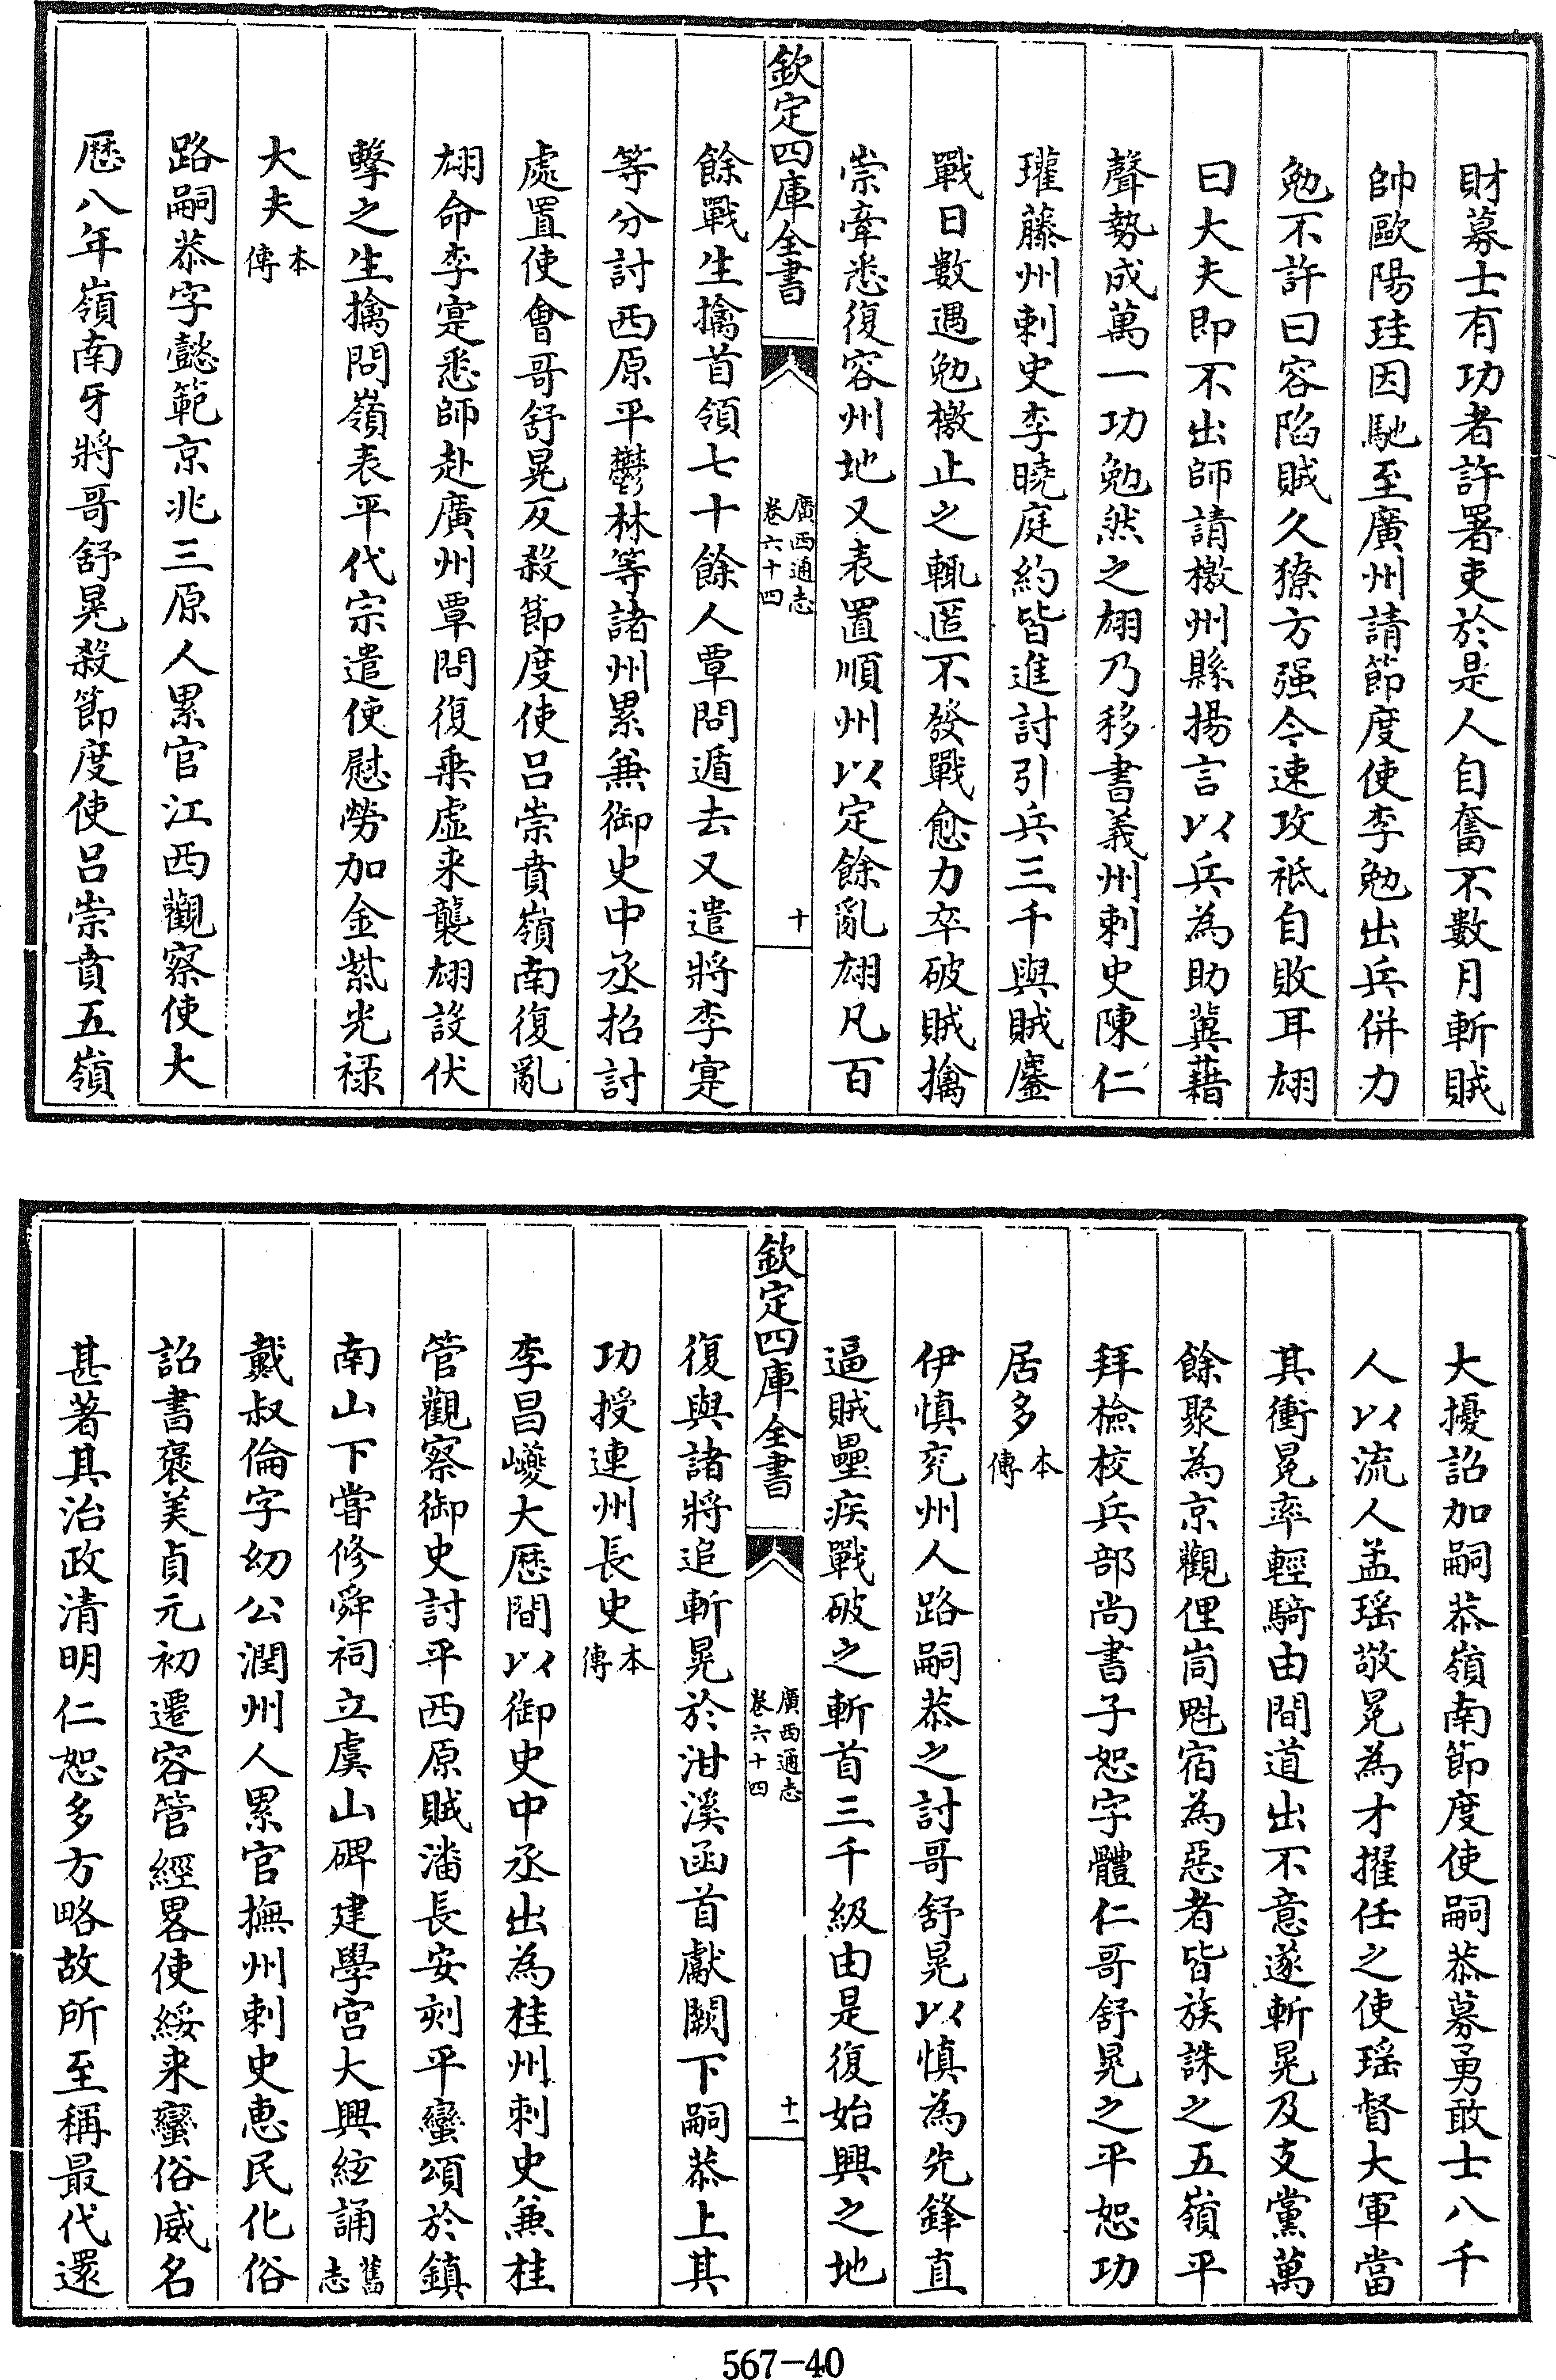 財募士有功者許署吏於是人自奮不數月斬賊
帥歐陽珪因馳至廣州請節度使李勉出兵併力
勉不許曰容陷賊久獠方强今速攻祗自敗耳翃
曰大夫即不出師請檄州縣揚言以兵為助冀藉
聲勢成萬一功勉然之翃乃移書義州刺史陳仁
璀藤州刺史李曉庭約皆進討引兵三千與賊鏖
戰日數遇勉檄止之輒匿不發戰愈力卒破賊擒
崇牽悉復容州地又表置順州以定餘亂翃凡百
欽定四庫全書
廣西通志
卷六十四
十
餘戰生擒首領七十餘人覃問遁去又遣將李寔
等分討西原平鬱林等諸州累兼御史中丞招討
處置使會哥舒晃反殺節度使呂崇賁嶺南復亂
翃命李寔悉師赴廣州覃問復乗虛来襲翃設伏
擊之生擒問嶺表平代宗遣使慰勞加金紫光禄
大夫本傳
路嗣恭字懿範京兆三原人累官江西觀察使大
厯八年嶺南牙將哥舒晃殺節度使呂崇賁五嶺
大擾詔加嗣恭嶺南節度使嗣恭募勇敢士八千
人以流人孟瑶敬冕為才擢任之使瑶督大軍當
其衝冕率輕騎由間道出不意遂斬晃及支黨萬
餘聚為京觀俚峝魁宿為惡者皆族誅之五嶺平
拜檢校兵部尚書子恕字體仁哥舒晃之平恕功
居多本傳
伊慎兖州人路嗣恭之討哥舒晃以慎為先鋒直
逼賊壘疾戰破之斬首三千級由是復始興之地
欽定四庫全書
廣西通志
卷六十四
十一
復與諸將追斬晃於泔溪函首獻闕下嗣恭上其
功授連州長史本傳
李昌巙大厯間以御史中丞出為桂州刺史兼桂
管觀察御史討平西原賊潘長安刻平蠻頌於鎮
南山下嘗修舜祠立虞山碑建學宫大興絃誦舊志
戴叔倫字幼公潤州人累官撫州刺史惠民化俗
詔書褒美貞元初遷容管經畧使綏来蠻俗威名
甚著其治政清明仁恕多方略故所至稱最代還
567-40